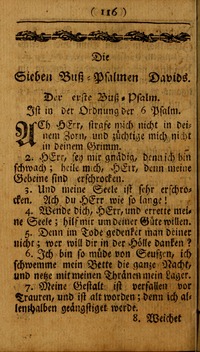 ( 116 )
Die
Sieben Buß-Psalmen Davids.
Der erste Buß-Psalm.
Ist in der Ordnung der 6 Psalm.
Ach HErr, strafe mich nicht in dei-
nem Zorn, und züchtige mich nicht
in deinem Grimm.
2. HErr, sey mir gnädig, denn ich bin
schwach; heile mich, HErr, denn meine
Gebeine sind erschrocken.
3. Und meine Seele ist sehr erschro-
cken. Ach du HErr wie so lange!
4. Wende dich, HErr, und errette mei-
ne Seele; hilf mir um deiner Güte willen.
5. Denn im Tode gedenket man deiner
nicht; wer will dir in der Hölle danken?
6. Ich bin so müde von Seufzen, ich
schwemme mein Bette die ganze Nacht,
und netze mit meinen Thränen mein Lager.
7. Meine Gestalt ist verfallen vor
Trauren, und ist alt worden; denn ich al-
lenthalben geängstiget werde.
8. Weichet